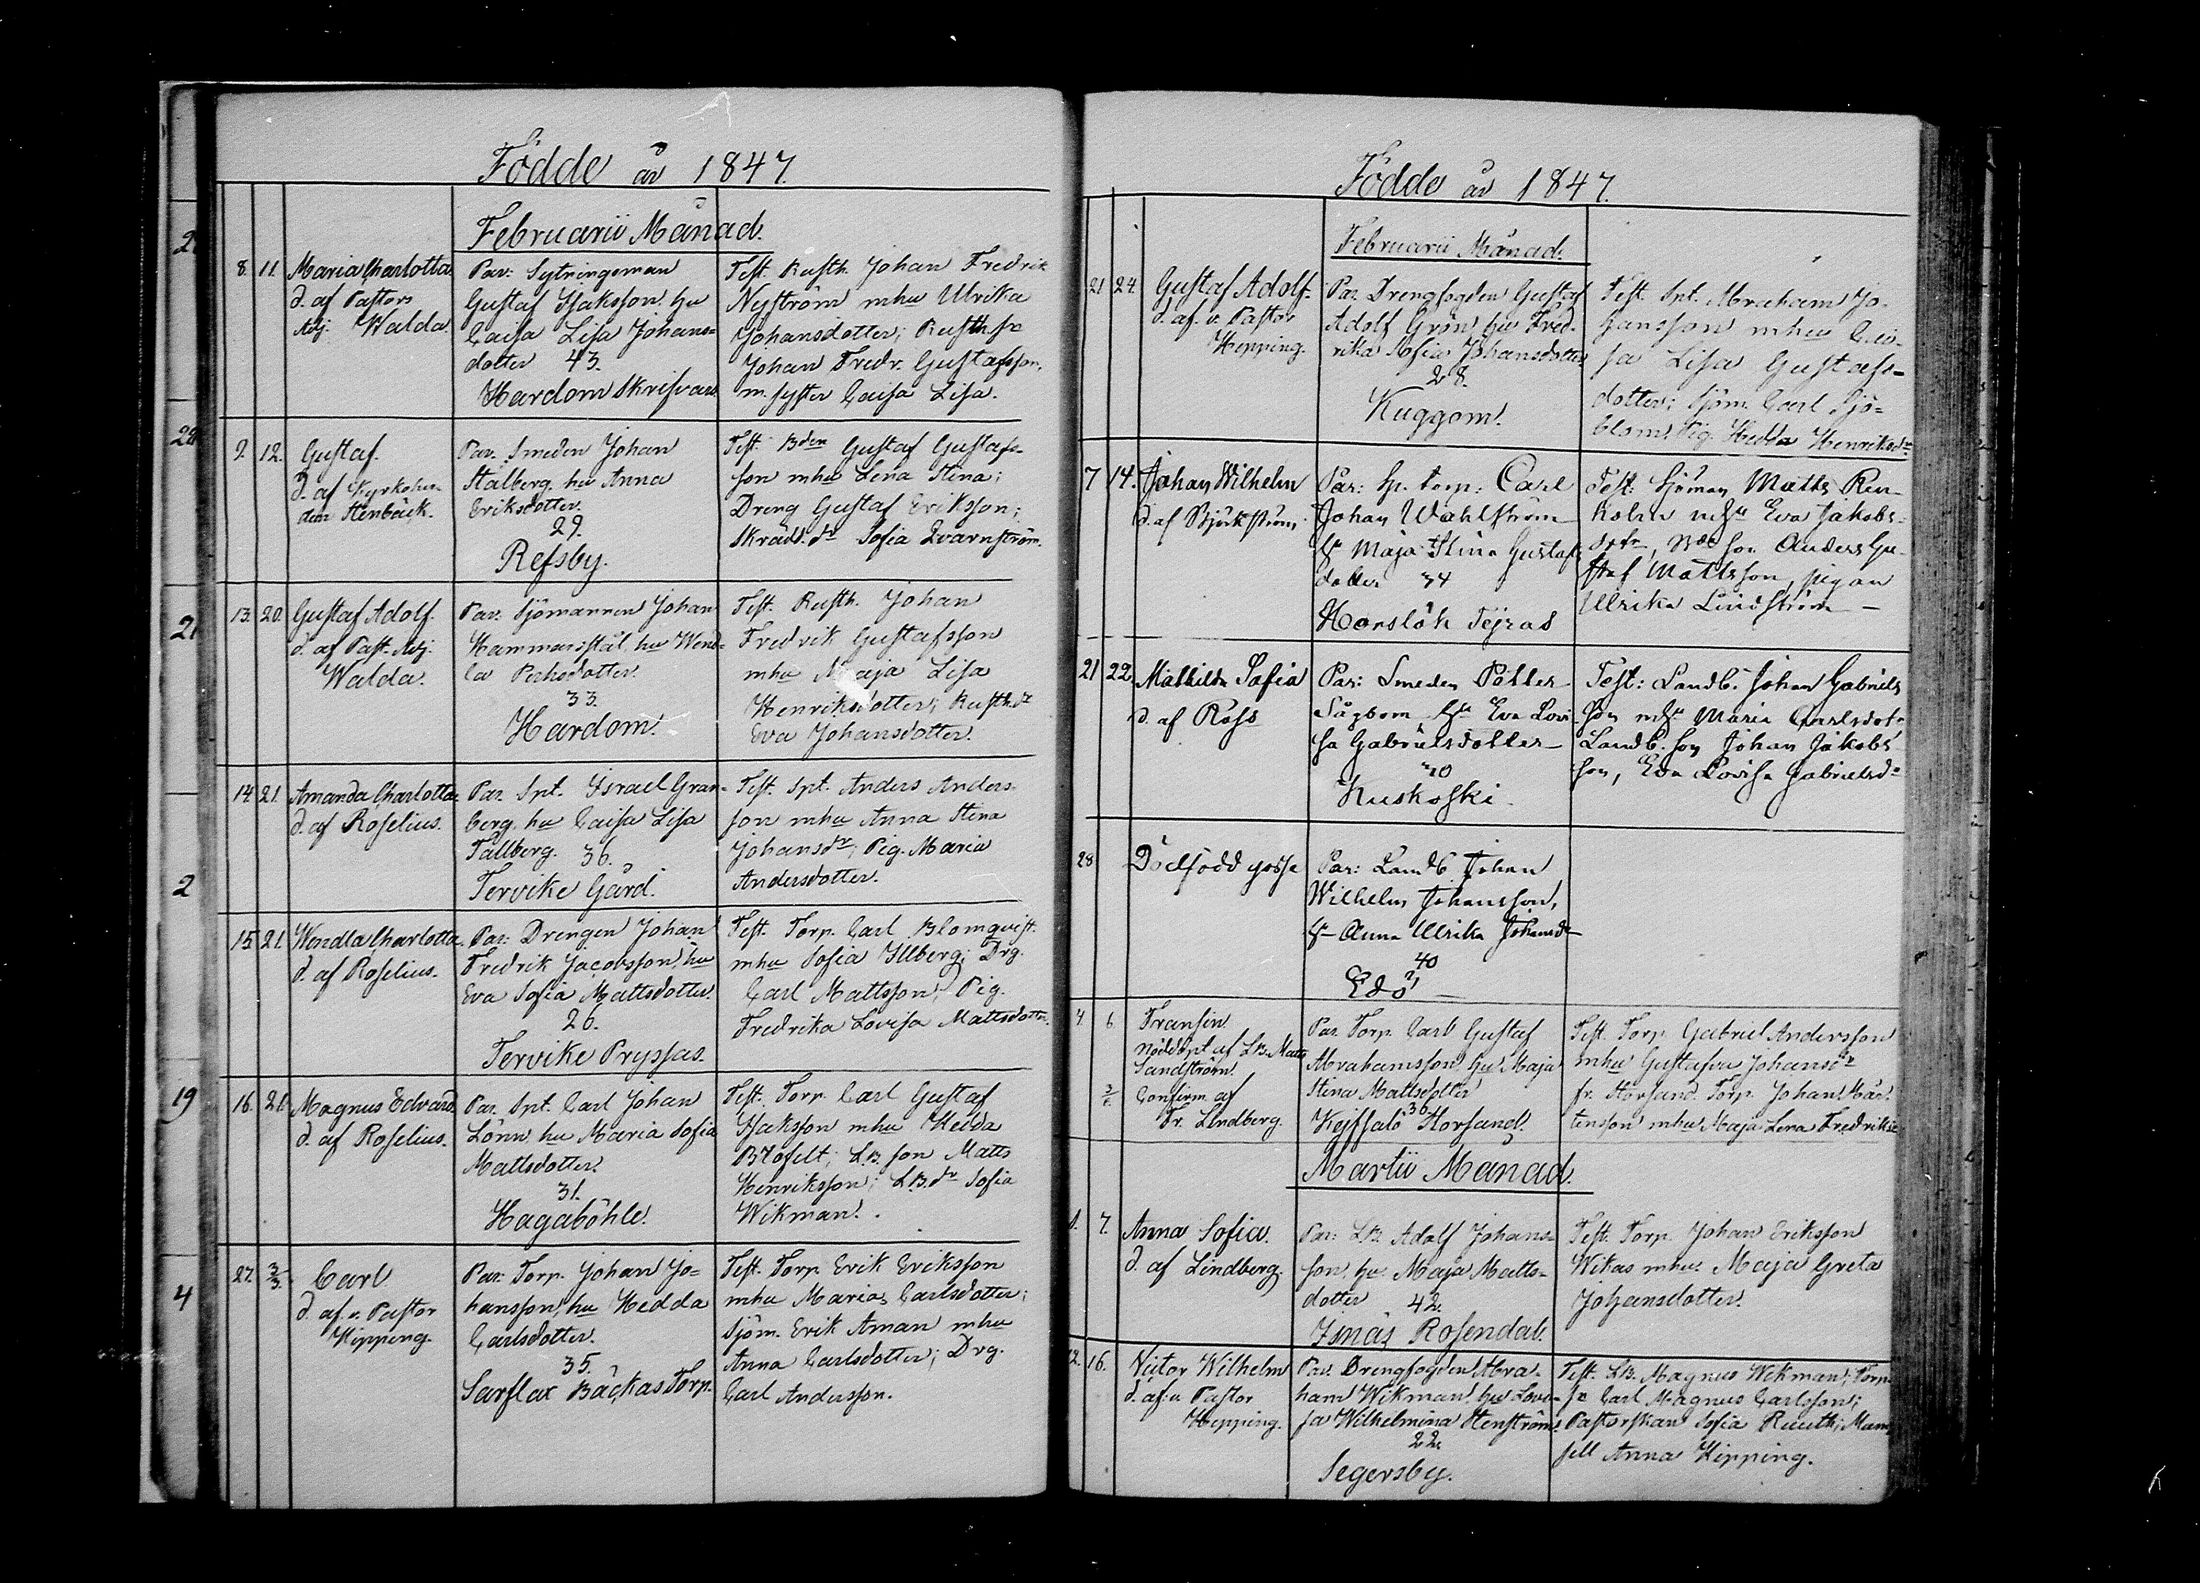 Födde år 1847.
Februarii Månad.
8. 11. Maria Charlotta
d. af Pastors
Adj. Walda
Par: Sytningsman
Gustaf Isaksson hu
Caisa Lisa Johans=
dotter 43.
Hardom Skrifvars
Test. Rusth. Johan Fredrik
Nyström mhu Ulrika
Johansdotter; Rusth sn
Johan Fredr. Gustafsson,
m. syster Caisa Lisa.
9. 12. Gustaf.
d. af Kyrkoher=
den Stenbäck.
Par. Smeden Johan
Stålberg hu Anna
Eriksdotter.
29.
Refsby.
Test. Bden Gustaf Gustafs=
son mhu Lena Stina;
Dreng Gustaf Eriksson;
Skrädd. dr Sofia Qvarnström.
13. 20. Gustaf Adolf.
d. af Past. Adj.
Walda.
Par. Sjömannen Johan
Hammarstål, hu Wend=
la Pehrsdotter.
33.
Hardom.
Test. Rusth. Johan
Fredrik Gustafsson
mhu Maja Lisa
Henriksdotter; Rusth.dr
Eva Johansdotter.
14. 21. Amanda Charlotta
d. af Roselius.
Par. Spt. Israel Gran=
berg, hu Caisa Lisa
Tallberg. 36.
Tervike Gård.
Test. Spt. Anders Anders=
son mhu Anna Stina
Johansdr; Pig. Maria
Andersdotter.
15. 21. Wendla Charlotta
d. af Roselius.
Par: Drengen Johan
Fredrik Jacobsson, hu
Eva Sofia Mattsdotter.
26.
Tervike Pryssas.
Test. Torp. Carl Blomqvist
mhu Sofia Illberg; Drg.
Carl Mattsson; Pig.
Fredrika Lovisa Mattsdotter.
16. 21. Magnus Edvard
d. af Roselius.
Par. Spt. Carl Johan
Lönn, hu Maria Sofia
Mattsdotter.
31.
Hagaböhle.
Test. Torp. Carl Gustaf
Isaksson mhu Hedda
Blåfelt; LB. son Matts
Henriksson; LB. dr Sofia
Wikman.
27. 3/3. Carl
d. af. v. Pastor
Hipping.
Par: Torp. Johan Jo=
hansson, hu Hedda
Carlsdotter.
35.
Sarflax Bäckas Torp.
Test. Torp. Erik Eriksson
mhu Maria Carlsdotter;
Sjöm. Erik Åman mhu
Anna Carlsdotter; Drg.
Carl Andersson.
Födde år 1847.
Februarii Månad.
21 24. Gustaf Adolf.
d. af. v. Pastor
Hipping.
Par. Drengfogden Gustaf
Adolf Grön, hu Fred=
rika Sofia Johansdotter
28.
Kuggom.
Test. Spt. Abraham Jo=
hansson mhu Cai=
sa Lisa Gustafs=
dotter; Sjöm. Carl Sjö=
blom. Pig. Hedda Henriksdr
7 14. Johan Wilhelm
d. af Björkström.
Par: Sp. torp: Carl
Johan Wahlström
Hu Maja Stina Gustafs
dotter 34
Horslök Tejras
Test: Sjöman Matts Ren
holm mhu Eva Jakobs=
dotr, Bde son Anders Gu
staf Mattsson, pigan
Ulrika Lindström
21 22 Mathilda Sofia
d. af Ross
Par: Smeden Petter
Sågbom Hu Eva Lovi
sa Gabrielsdotter
Kuskoski
Test: Landb. Johan Gabriels
son mhu Maria Carlsdotr
Landb. son Johan Jakobs
son, Eva Lovisa Gabrielsdr
28 Dödfödd gosse
Par: Landb. Johan
Wilhelm Johansson,
Hu Anna Ulrika Johansdr
40
Edö
4. 6. Fransin
Nöddöpt af LB. Matts
Sandström.
Confirm. af
Fr. Lindberg.
Par. Torp. Carl Gustaf
Abrahamsson, hu Maja
Stina Mattsdotter
36
Kejtsalö Storsand.
Test. Torp. Gabriel Andersson
mhu Gustafva Johansdr
fr. Storsand. Torp. Johan Mår=
tensson mhu Maja Lena Fredriksdr
Martii Månad.
1. 7. Anna Sofia.
d. af Lindberg.
Par: LB. Adolf Johans=
son, hu. Maja Matts=
dotter 42.
Isnäs Rosendal.
Test. Torp. Johan Eriksson
Wikas mhu. Maja Greta
Johansdotter.
12. 16. Victor Wilhelm
d. af v. Pastor
Hipping.
Par. Drengfogden Abra=
ham Wikman, hu Lovi=
sa Wilhelmina Stenström.
22.
Segersby.
Test. LB. Magnus Wikman; Torp.
sn Carl Magnus Carlsson;
Pastorskan Sofia Ruuth; Mam=
sell Anna Hipping.
2
28
21
2
19
4